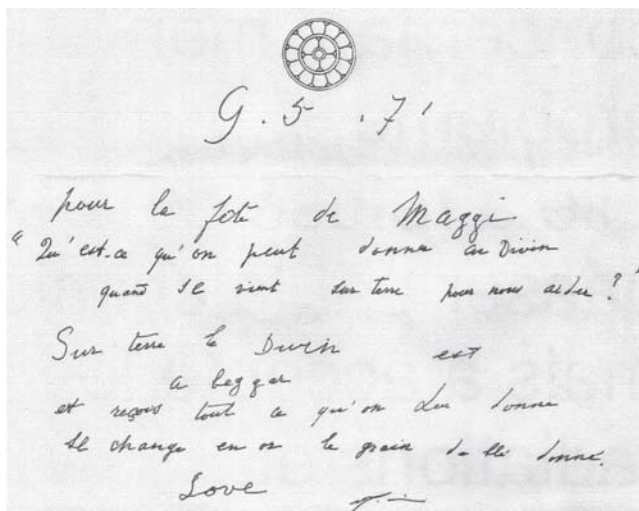 9.5.71
pour la fête de Maggi
"Qu'est-ce qu'on peut donner au Divin
quand Il vient sur terre pour nous aider ?"
Sur terre le Divin est
a beggar
et reçois tout ce qu'on Lui donne
Il change en or le grain de blé donné.
Love